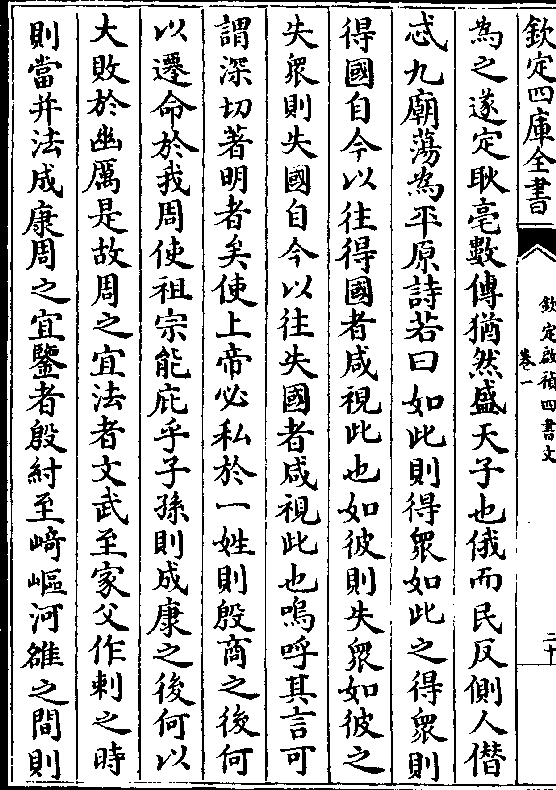 欽定四庫全書
欽定啟禎四書文
卷一
二十
為之遂定耿亳數傳猶然盛天子也俄而民反側人僭
忒九廟蕩為平原詩若曰如此則得衆如此之得衆則
得國自今以往得國者咸視此也如彼則失衆如彼之
失衆則失國自今以往失國者咸視此也嗚呼其言可
謂深切著明者矣使上帝必私於一姓則殷商之後何
以遷命於我周使祖宗能庇乎子孫則成康之後何以
大敗於幽厲是故周之宜法者文武至家父作刺之時
則當并法成康周之宜鑒者殷紂至﨑嶇河雒之間則